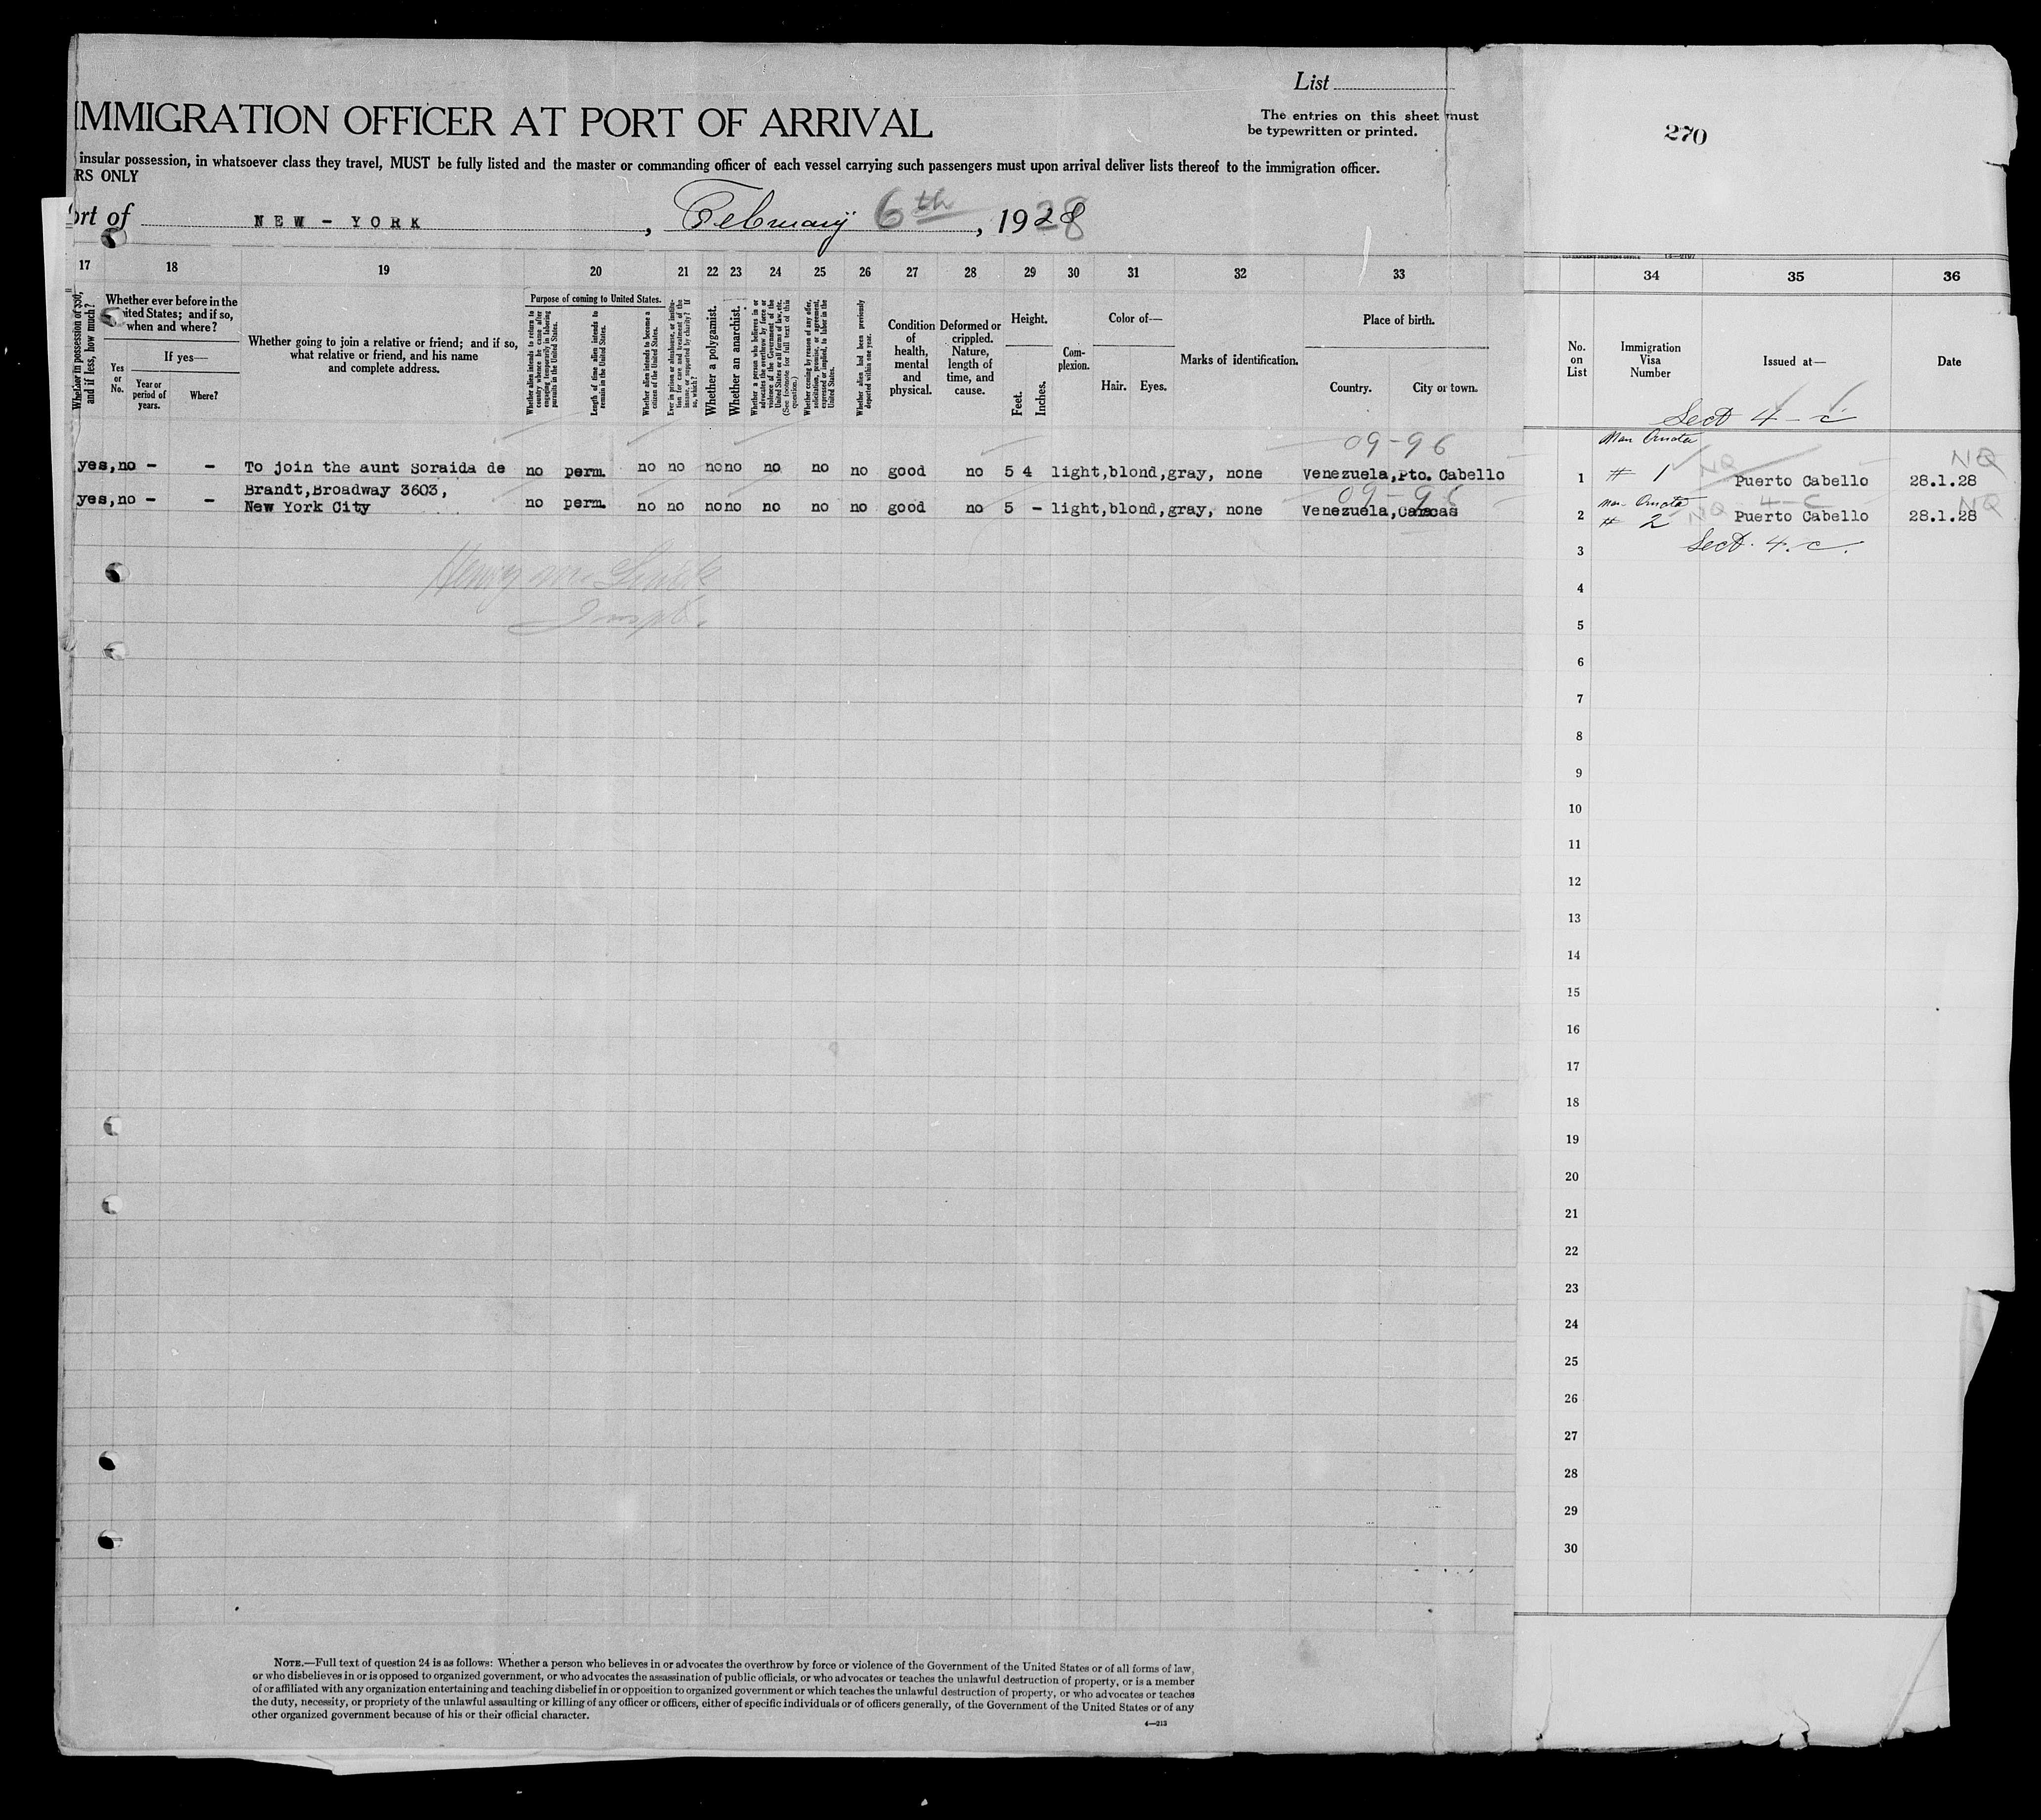 List
IMMIGRATION OFFICER AT PORT OF ARRIVAL
The entries on this sheet must
be typewritten or printed.
270
insular possession, in whatsoever class they travel, MUST be fully listed and the master or commanding officer of each vessel carrying such passengers must upon arrival deliver lists thereof to the immigration officer.
RS ONLY
ort of NEW-YORK, February 6th, 1928
17 18 19 20 21 22 23 24 25 26 27 28 29 30 31 32 33 34 35 36
Whether in possession of $50, and if less, how much?
Whether ever before in the United States; and if so, when and where?
If yes—
Yes or No.
Year or period of years.
Where?
Whether going to join a relative or friend; and if so, what relative or friend, and his name and complete address.
Purpose of coming to United States.
Whether alien intends to return to country whence he came after engaging temporarily in laboring pursuits in the United States.
Length of time alien intends to remain in the United States.
Whether alien intends to become a citizen of the United States.
Ever in prison or almshouse, or institution for care and treatment of the insane, or supported by charity? If so, which?
Whether a polygamist.
Whether an anarchist.
Whether a person who believes in or advocates the overthrow by force or violence of the Government of the United States or all forms of law, etc. (See footnote for full text of this question.)
Whether coming by reason of any offer, solicitation, promise, or agreement, expressed or implied, to labor in the United States.
Whether alien had been previously deported within one year.
Condition of health, mental and physical.
Deformed or crippled. Nature, length of time, and cause.
Height.
Feet.
Inches.
Complexion.
Color of—
Hair. Eyes.
Marks of identification.
Place of birth.
Country. City or town.
No. on List
Immigration Visa Number
Issued at—
Date
Sect 4 - c
09-96
yes, no - - To join the aunt Soraida de no perm. no no no no no no no good no 5 4 light, blond, gray, none Venezuela, Pto. Cabello 1 # 1 NQ Puerto Cabello 28.1.28 NQ
Brandt, Broadway 3603,
09-96 4-C
yes, no - - New York City no perm. no no no no no no no good no 5 - light, blond, gray, none Venezuela, Caracas 2 # 2 NQ Puerto Cabello 28.1.28 NQ
3 Sect. 4. c.
4
5
6
7
8
9
10
11
12
13
14
15
16
17
18
19
20
21
22
23
24
25
26
27
28
29
30
NOTE.—Full text of question 24 is as follows: Whether a person who believes in or advocates the overthrow by force or violence of the Government of the United States or of all forms of law,
or who disbelieves in or is opposed to organized government, or who advocates the assassination of public officials, or who advocates or teaches the unlawful destruction of property, or is a member
of or affiliated with any organization entertaining and teaching disbelief in or opposition to organized government or which teaches the unlawful destruction of property, or who advocates or teaches
the duty, necessity, or propriety of the unlawful assaulting or killing of any officer or officers, either of specific individuals or of officers generally, of the Government of the United States or of any
other organized government because of his or their official character.
4—213